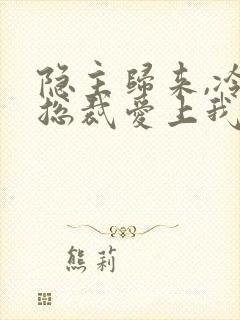 隐主歸来,冷
总裁爱上我
熊莉